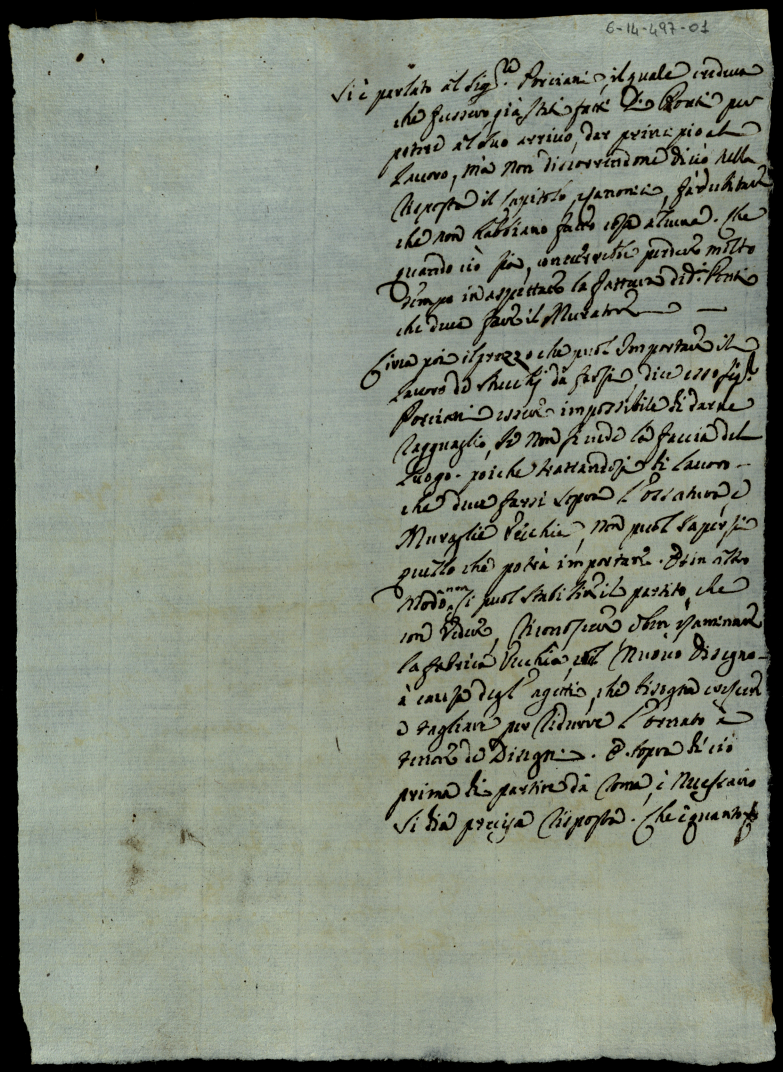 6-14-497-01
Si è parlato al Sig.re Porciani, il quale credeva
che fussero già stati fatti li Ponti per
potere al suo arrivo, dar principio al
Lavoro, mà non discorrendone di ciò nella
Risposta il Capitolo, e Canonici, fà dubitare
che non habbiano fatto cosa alcuna. Che
quando ciò sia, converrebbe perdere molto
tempo in aspettare la fattura di d.i Ponti
che deve fare il Muratore
Circa poi il prezzo che puol Importare il
Lavoro de Stucchi da farsi, dice esso Sig.r
Porciani essere impossibile di darne
ragguaglio, se non si vede la faccia del
Luogo. poiche trattandosi di Lavoro
che deve farsi sopra l'ossatura, e
Muraglie Vecchie, non puol sapersi
quello che potrà importare. Et in altro
modo non si puol stabilire il partito, che
con Vedere, riconoscere e ben esaminare
la fabrica Vecchia, col nuovo Disegno
à causa degl'agetti, che bisogna crescere
e tagliare per ridurre l'ornato à
tenore de Disegni. E sopra di ciò
prima di partire dà Roma, è necessario
Si dia precisa risposta. Che è quanto